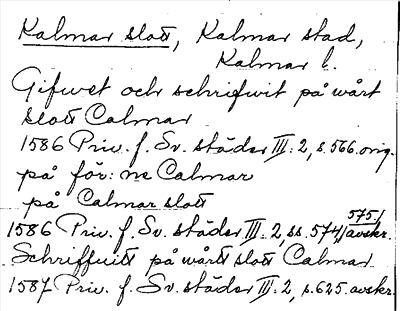 Kalmar slott, Kalmar stad,
Kalmar l.
Gifwet och schrifwit på wårt
slott Calmar
1586 Priv. f. Sv. städer III:2, s. 566. orig.
på för:ne Calmar
på Calmar slott
1586 Priv. f. Sv. städer III:2, ss. 574, 575, avskr.
Schriffuitt på wårtt slott Calmar
1587 Priv. f. Sv. städer III:2, s. 625. avskr.